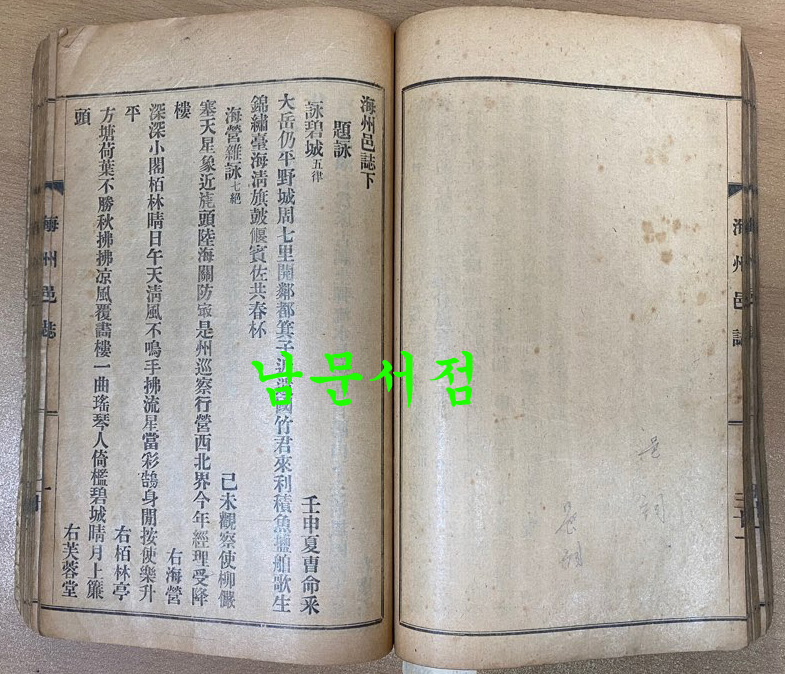 海州邑誌
海州邑誌下
題詠
詠碧城 五律 壬申夏曺命釆
大岳仍平野城周七里開鄰都箕子國竹君來利積魚鹽舶歌生
錦繡臺海淸旗皷偃賓佐共春杯
海營雜詠 七絕 己未觀察使柳儼
塞天星象近旄頭陸海關防㝡是州巡察行營西北界今年經理受降
樓 右海營
深深小閣栢林晴日午天淸風不鳴手拂流星當彩鵠身閒按使樂升
平 右栢林亭
方塘荷葉不勝秋拂拂凉風覆畵樓一曲瑤琴人倚檻碧城晴月上簾
頭 右芙蓉堂
海州邑誌
남문서점